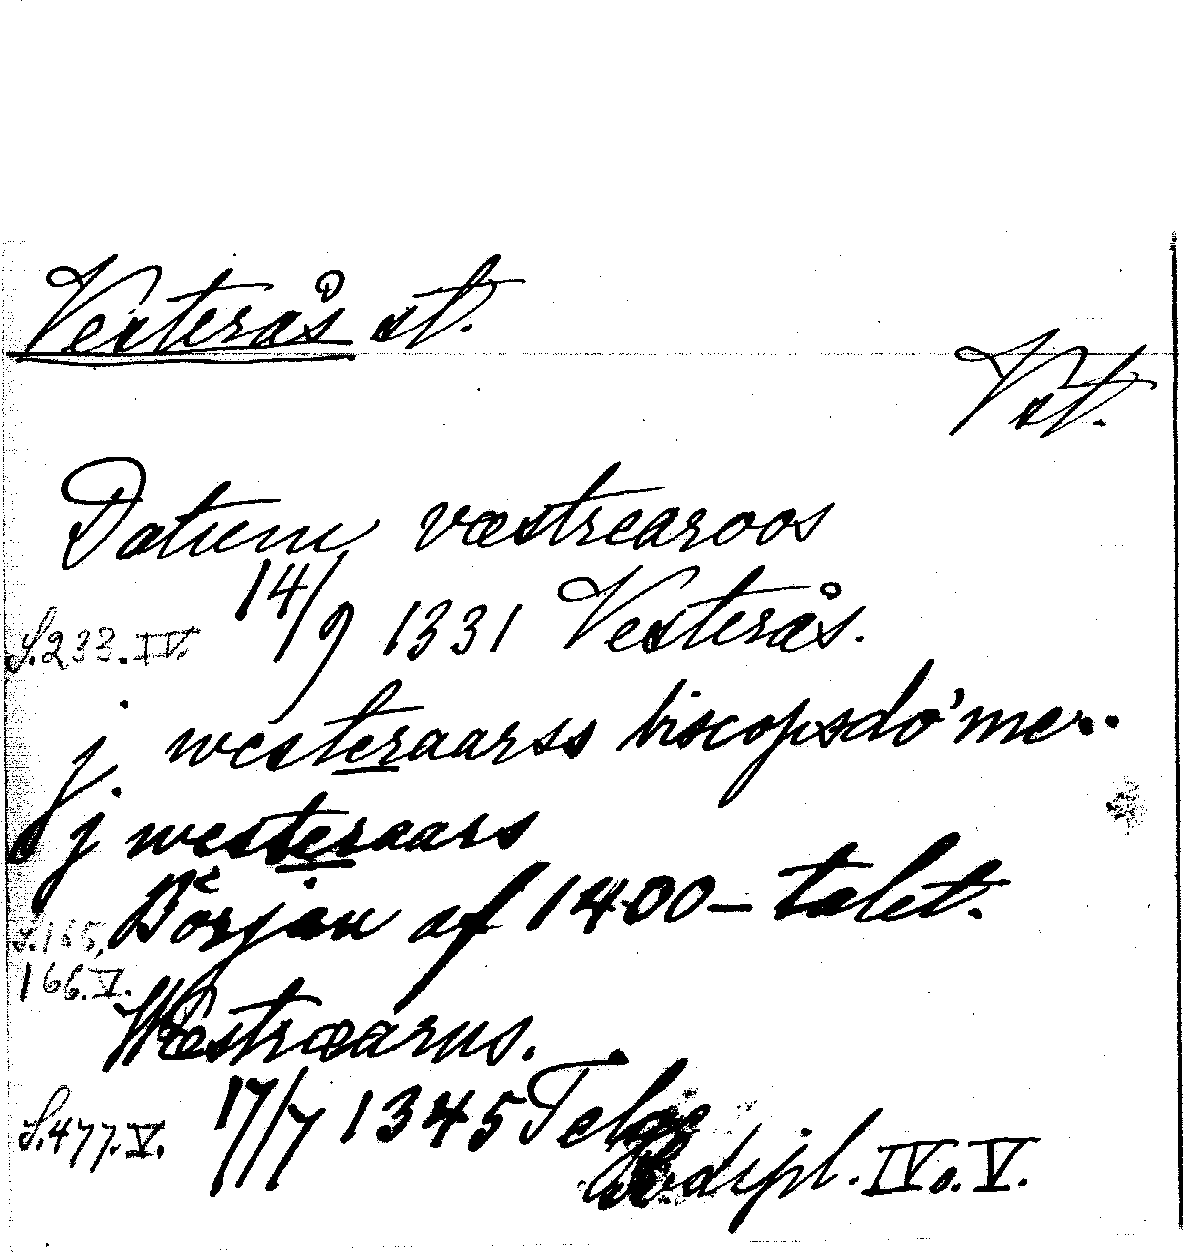 Vesterås st.
Vst.
Datum væstrearoos
14/9 1331 Vesterås.
S. 233. IV.
j westeraarss biscopsdöme..
j westeraars
Början af 1400-talet.
S. 165,
166. V.
Westræarus.
17/7 1345 Telge
S. 477. V.
dipl. IV o. V.